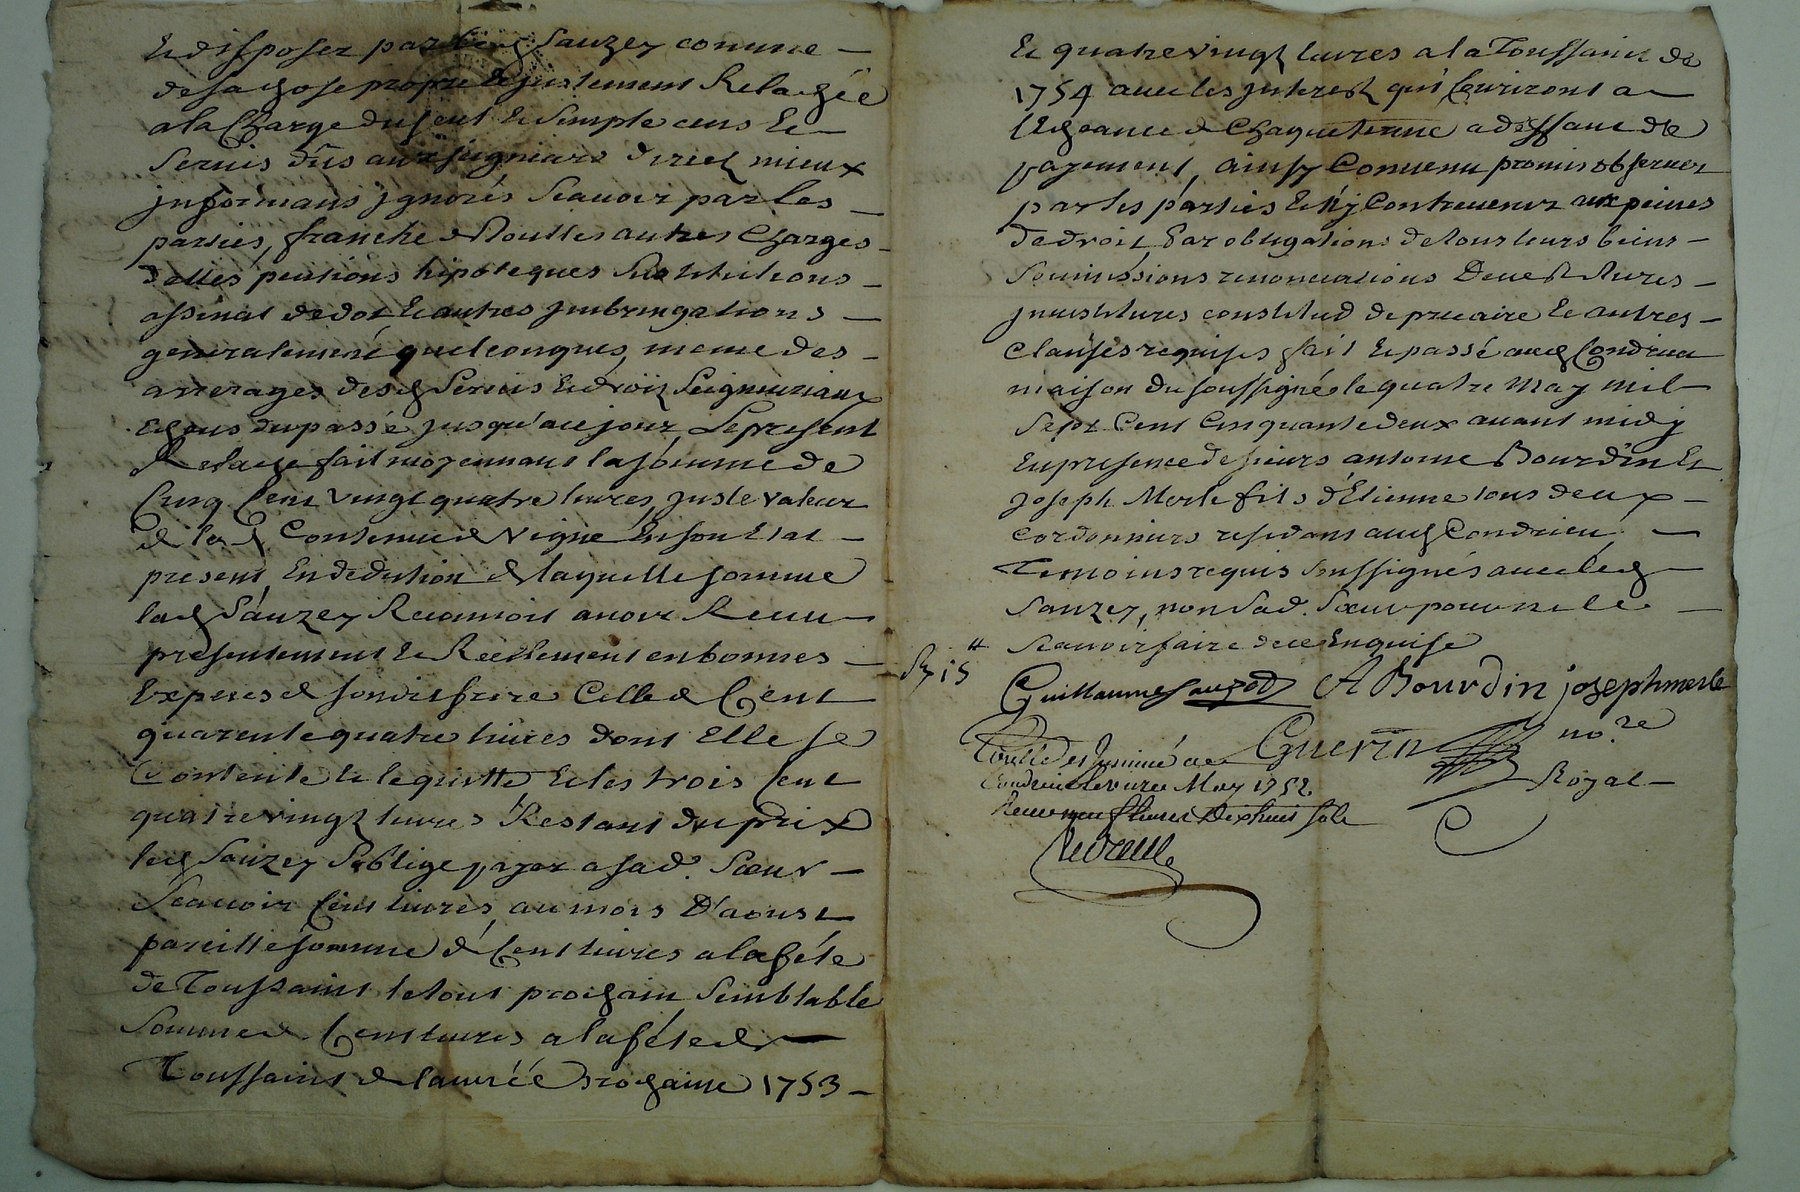 Et disposer par led Sauzey comme —
de sa chose propre et justement Relachée
a la Charge du seul et simple cens Et —
Servis dûs aux seigneurs direct mieux
informans ignorés Scavoir par les —
parties, franche de Touttes autres Charges —
dettes pentions hipoteques Substitutions —
assinat de dot Et autres Imbringations —
generalement quelconques, meme des —
arrerages desd Servis Et droit Seigneuriaux
Echeus du passé jusqu'à ce jour, Le present
Relache fait moyennant la somme de
Cinq Cent vingt quatre livres, juste valeur
de lad Contenue de Vigne En son Etat —
present, En deduction de laquelle somme
lad Sauzey Reconnoit avoir Receu —
presentement Et Réellement en bonnes —
Expeces de son dit frere Celle de Cent
quarente quatre livres dont Elle se
Contente Et le quitte Et les trois Cent
quatre vingt livres Restant du prix
led Sauzey S'oblige payer a sad. Sœur —
Scavoir Cent livres au mois D'aoust
pareille somme de Cent livres a la féte
de Toussaint le tout prochain Semblable
Somme de Cent livres a la féte de —
Toussaint de l'année prochaine 1753 —
Et quatre vingt livres a la Toussaint de
1754 avec les jnterest qui Courriront a —
l'Echeance de Chaque terme a deffaut de
payement, ainsy Convenu promis observer
par les parties Et n'y Contrevenir aux peines
de droit par obligations de tous leurs biens —
Soumissions renonciations Devestitures —
jnvestitures constitud de precaire Et autres —
Clauses requises fait Et passé aud Condrieu
maison du soussigné le quatre May mil
Sept Cent Cinquante deux avant midy
En presence de sieurs antoine Bourdin Et
Joseph Merle fils d'Etienne tous deux —
Cordonniers residant aud Condrieu —
Temoins requis soussignés avec led —
Sauzey, non Sad. Sœur pour ne le —
Scavoir faire de ce Enquise
Guillaume Sauzey A Bourdin joseph merle
Guerin no.re
Royal —
Controllé et Insinué a
Condrieu le onze May 1752.
Receu neuf livres Dixhuit sols